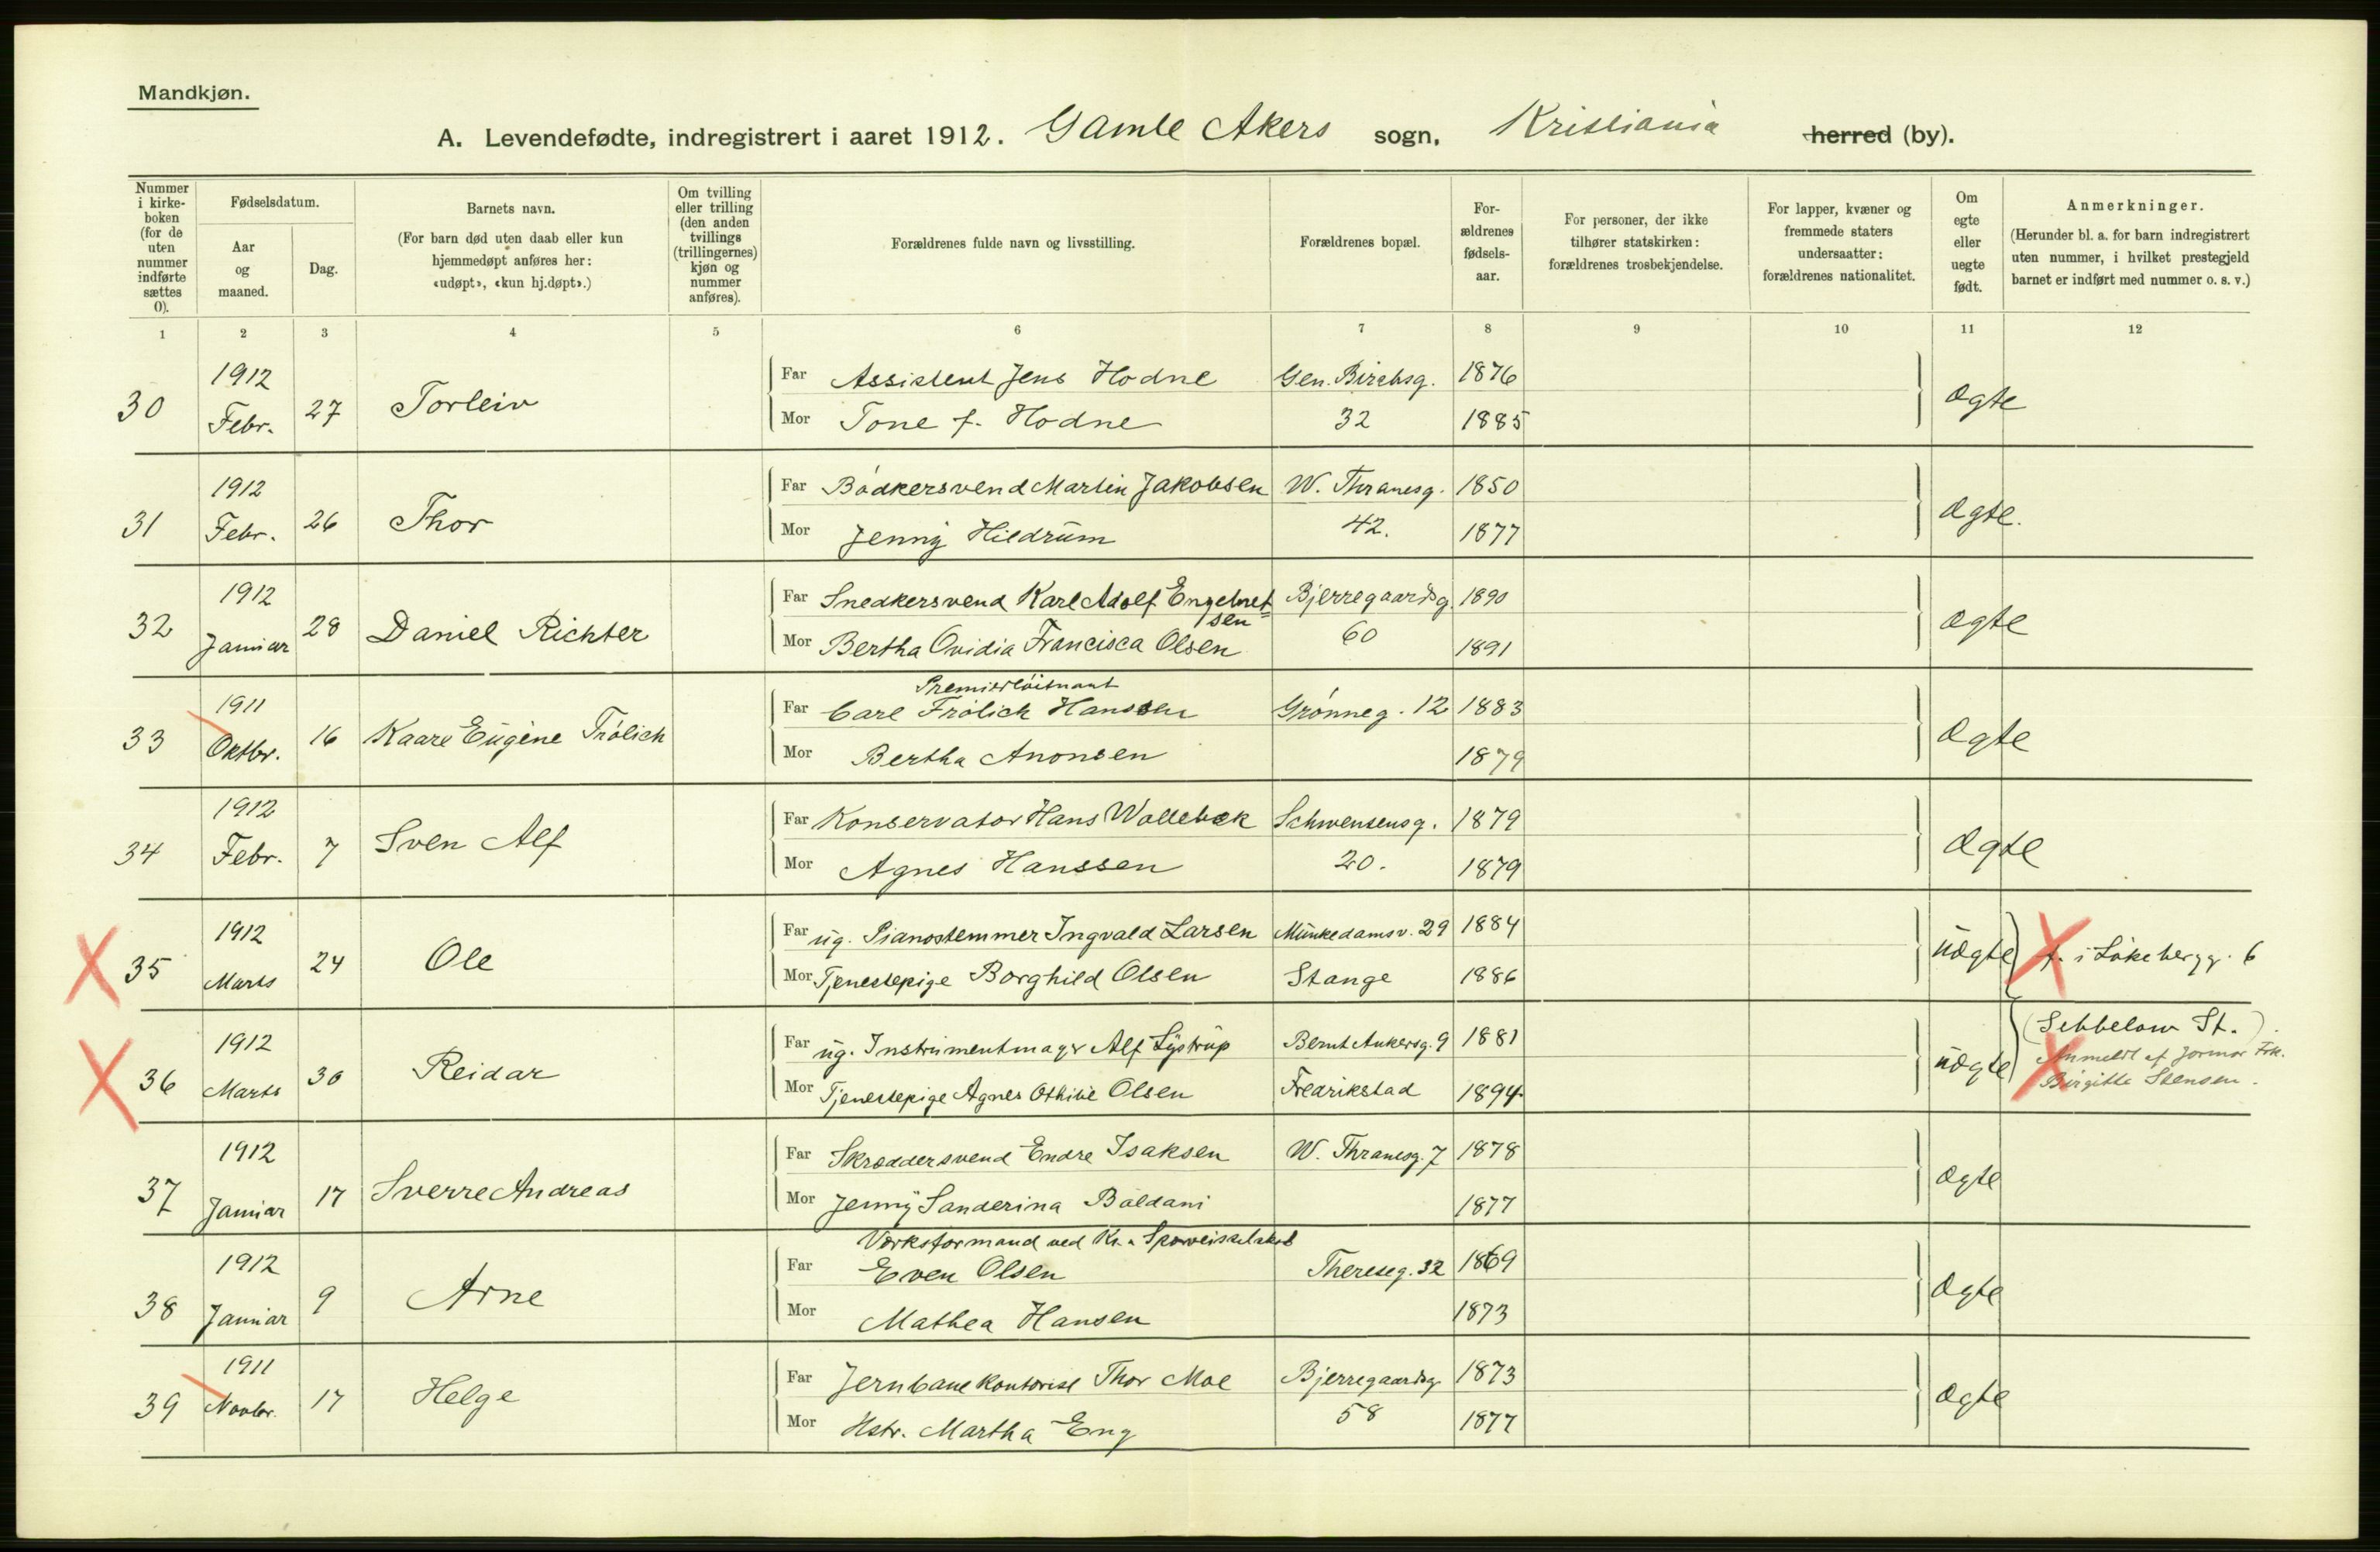 Mandkjøn.
A. Levendefødte, indregistrert i aaret 1912. Gamle Akers sogn, Kristiania herred (by).
Nummer i kirke-boken (for de uten nummer indførte sættes 0).
Fødselsdatum.
Aar og maaned.
Dag.
Barnets navn.
(For barn død uten daab eller kun hjemmedøpt anføres her: «udøpt», «kun hj.døpt».)
Om tvilling eller trilling (den anden tvillings (trillingernes) kjøn og nummer anføres).
Forældrenes fulde navn og livsstilling.
Forældrenes bopæl.
For-ældrenes fødsels-aar.
For personer, der ikke tilhører statskirken: forældrenes trosbekjendelse.
For lapper, kvæner og fremmede staters undersaatter: forældrenes nationalitet.
Om egte eller uegte født.
Anmerkninger.
(Herunder bl. a. for barn indregistrert uten nummer, i hvilket prestegjeld barnet er indført med nummer o. s. v.)
1 2 3 4 5 6 7 8 9 10 11 12
30 1912 Febr. 27 Torleiv
Far Assistent Jens Hodne Gen. Birchsg. 1876 ægte
Mor Tone f. Hodne 32 1885
31 1912 Febr. 26 Thor
Far Bødkersvend Martin Jakobsen W. Thranesg. 1850 ægte.
Mor Jenny Hildrum 42. 1877
32 1912 Januar 28 Daniel Richter
Far Snedkersvend Karl Adolf Engebret=sen Bjerregaardsg. 1890 ægte
Mor Bertha Ovidia Francisca Olsen 60 1891
33 1911 Oktbr. 16 Kaare Eugène Frölich
Premierløitnant
Far Carl Frölich Hanssen Grønneg. 12 1883 ægte
Mor Bertha Anonsen 1879
34 1912 Febr. 7 Sven Alf
Far Konservator Hans Wollebæk Schwensensg. 1879 ægte
Mor Agnes Hanssen 20. 1879
35 1912 Marts 24 Ole
Far ug. Pianostemmer Ingvald Larsen Munkedamsv. 29 1884 uægte f. i Løkebergg. 6
Mor Tjenestepige Borghild Olsen Stange 1886
36 1912 Marts 30 Reidar
Far ug. Instrumentmager Alf Lystrup Bernt Ankersg. 9 1881 uægte (Sebbelow St.).
Mor Tjenestepige Agnes Othilie Olsen Fredrikstad 1894.
Anmeldt af Jormor Frk.
Birgitte Stensen.
37 1912 Januar 17 Sverre Andreas
Far Skræddersvend Endre Isaksen W. Thranesg. 7 1878 ægte
Mor Jenny Sanderina Baldani 1877
38 1912 Januar 9 Arne
Verksformand ved Kr.a Sporveisselskab
Far Even Olsen Thereseg. 32 1869 ægte
Mor Mathea Hansen 1873
39 1911 Novbr. 17 Helge
Far Jernbanekontorist Thor Moe Bjerregaardsg. 1873 ægte
Mor Hstr. Martha Eng 58 1877